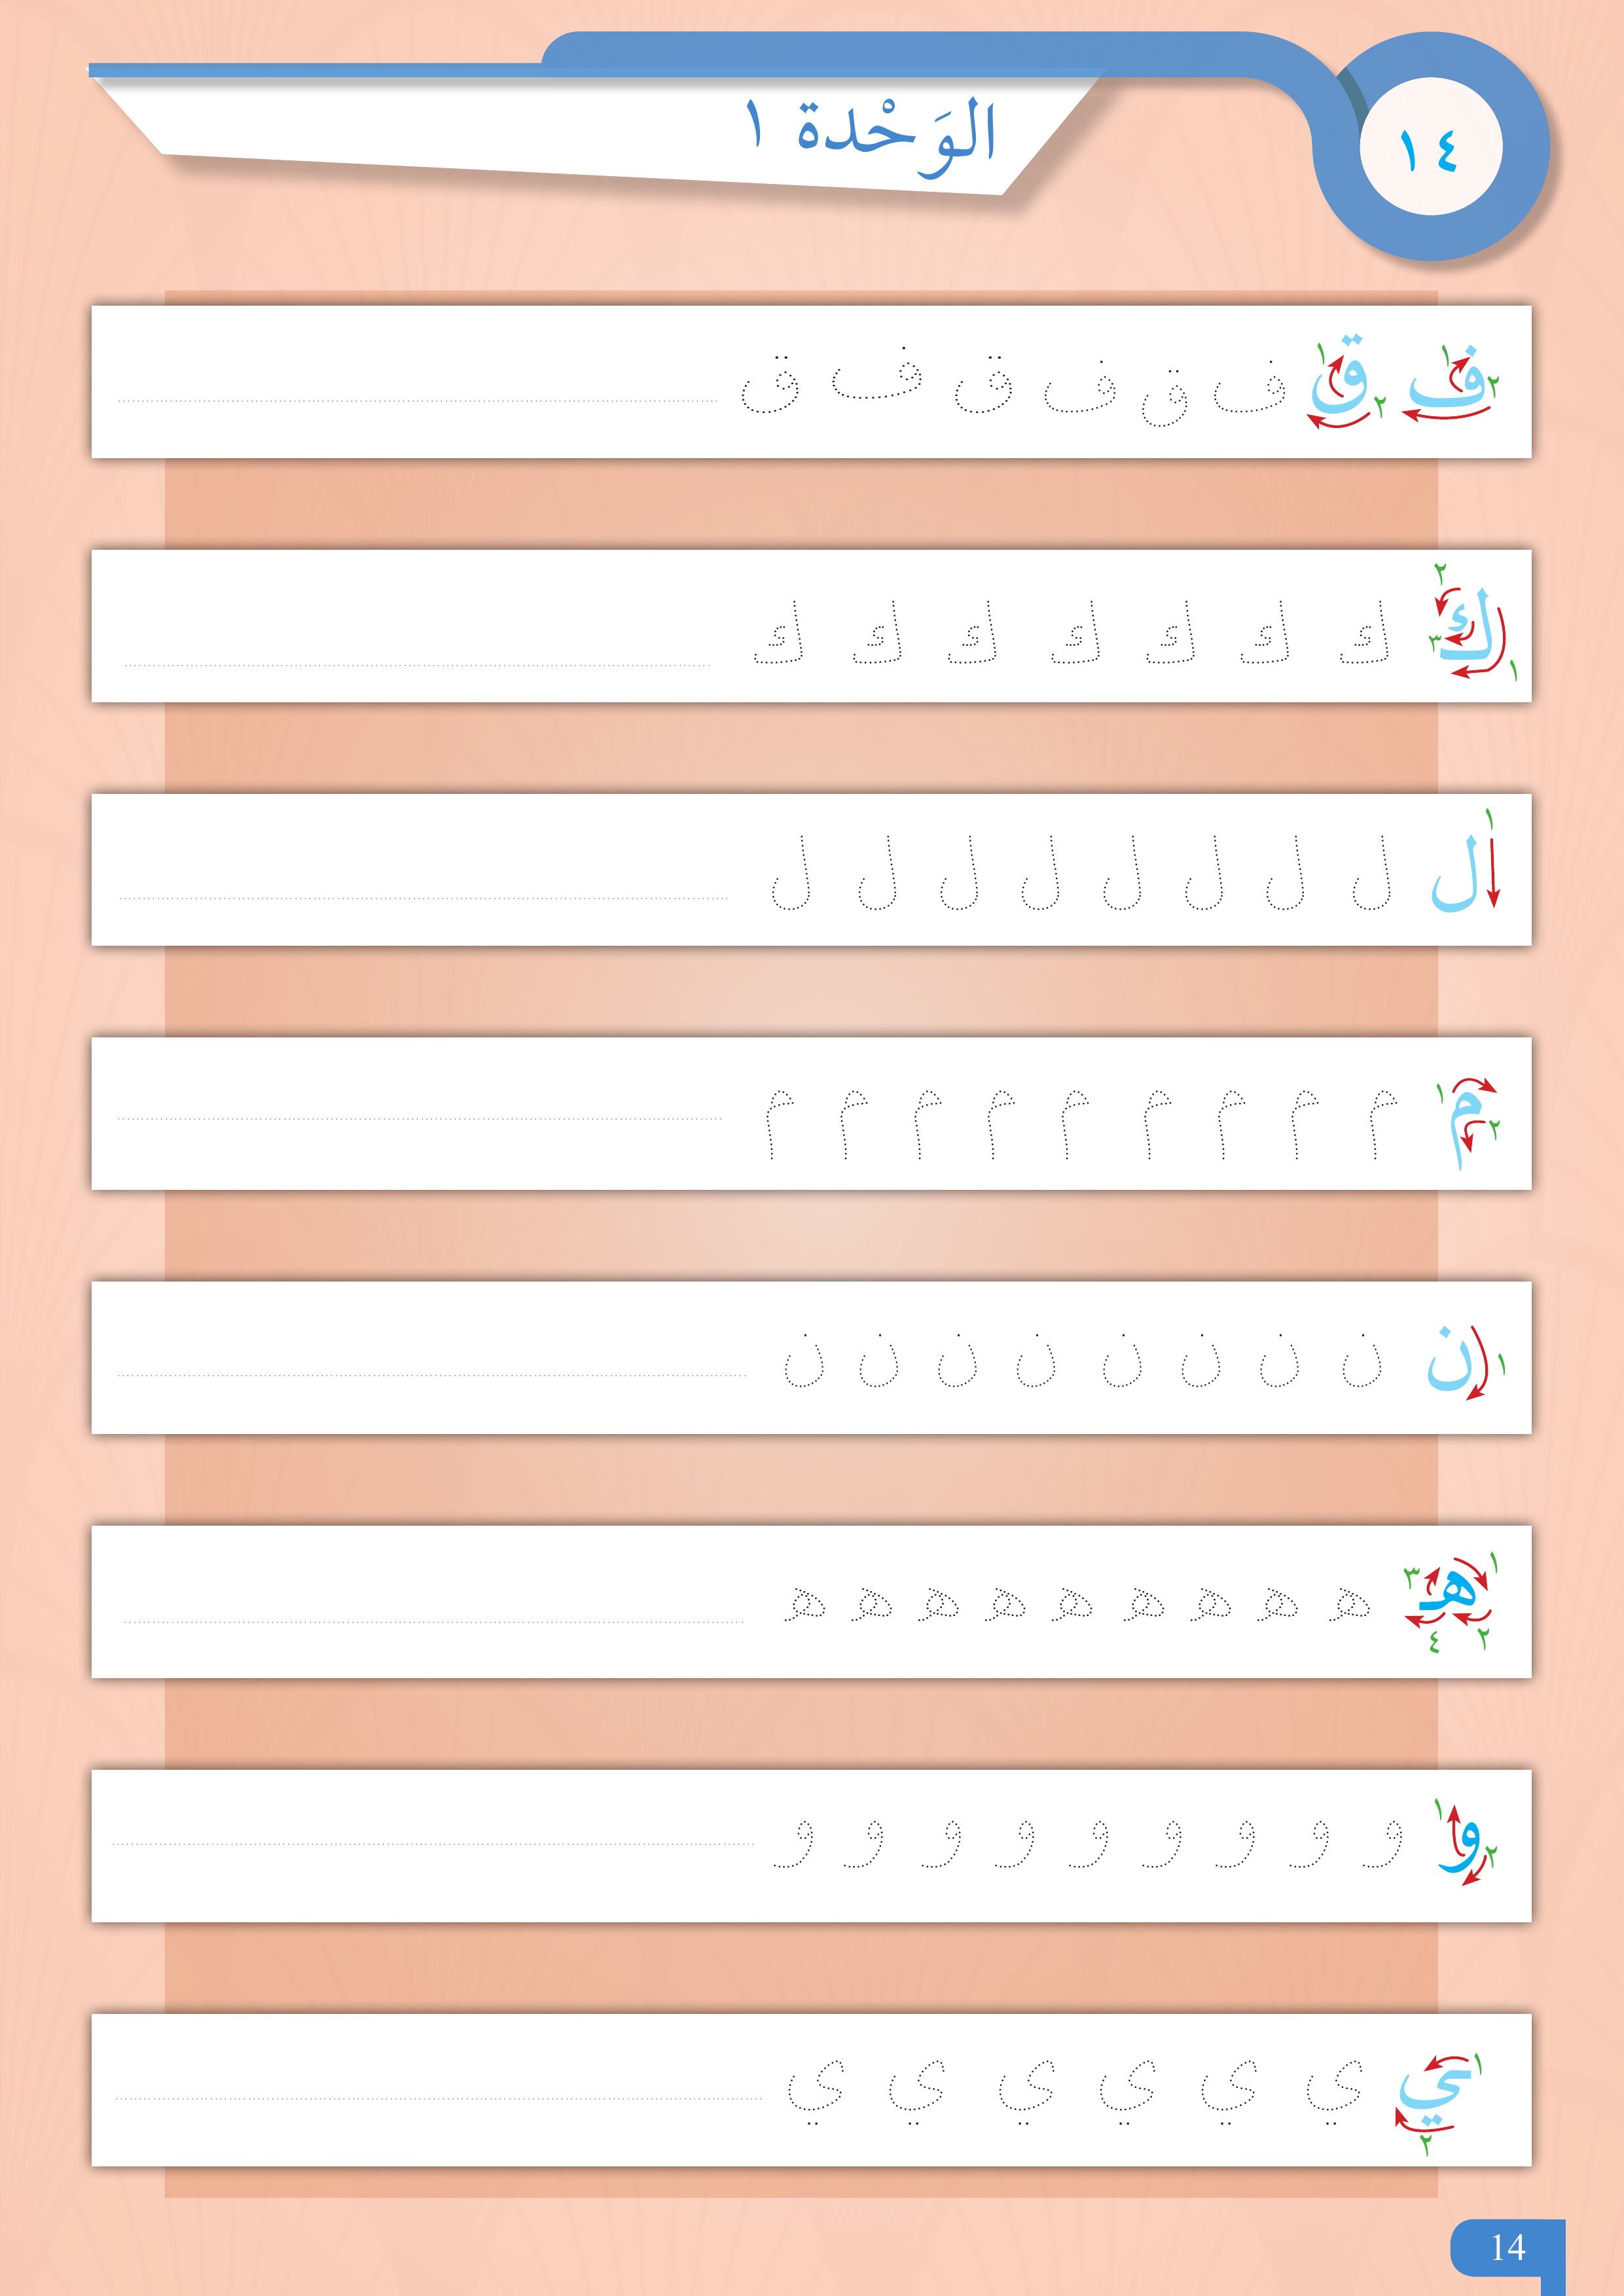 الوَحْدة ١
١٤
ف ق ف ق ف ق ف ق
١ ٢ ١ ٢
ك ك ك ك ك ك ك ك
١ ٢ ٣
ل ل ل ل ل ل ل ل ل
١
م م م م م م م م م م
١ ٢
ن ن ن ن ن ن ن ن ن
١
هـ هـ هـ هـ هـ هـ هـ هـ هـ هـ
١ ٢ ٣ ٤
و و و و و و و و و و
١ ٢
ي ي ي ي ي ي ي
١ ٢
14